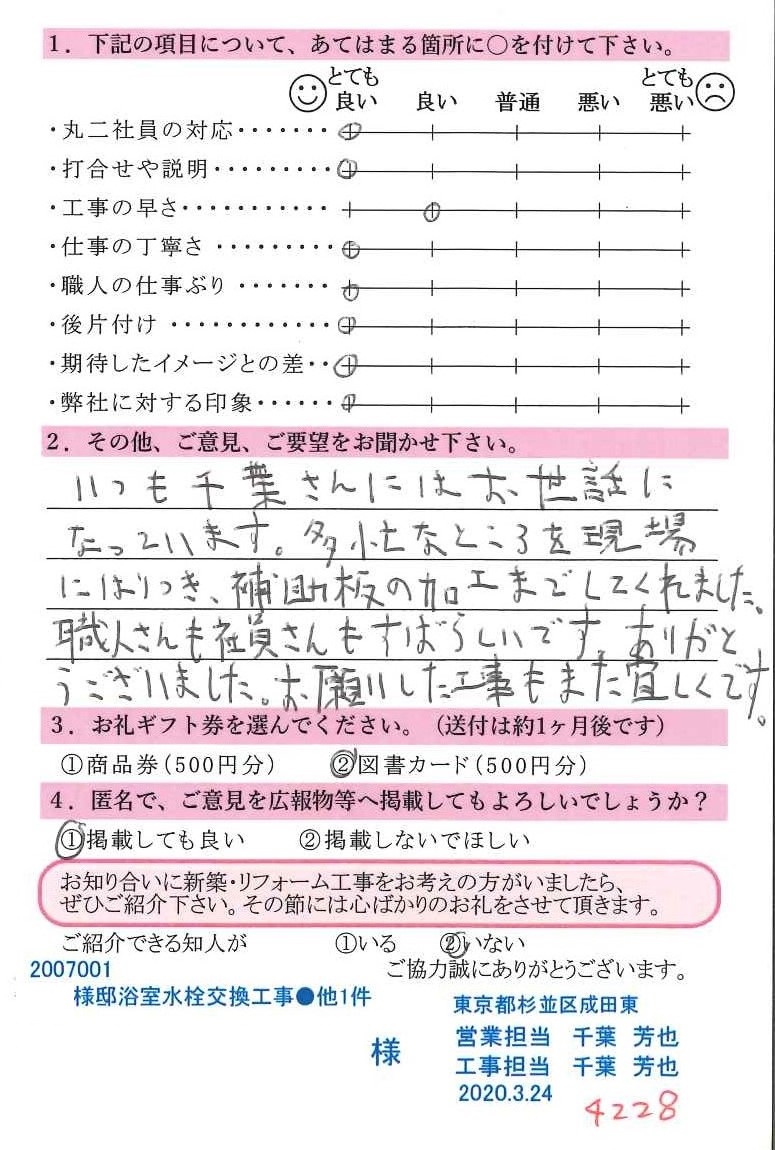 1．下記の項目について、あてはまる箇所に○を付けて下さい。
とても良い 良い 普通 悪い とても悪い
・丸二社員の対応・・・・・・・
・打合せや説明・・・・・・・・・
・工事の早さ・・・・・・・・・・・
・仕事の丁寧さ・・・・・・・・・
・職人の仕事ぶり・・・・・・・
・後片付け・・・・・・・・・・・・
・期待したイメージとの差・・
・弊社に対する印象・・・・・・
2．その他、ご意見、ご要望をお聞かせ下さい。
いつも千葉さんにはお世話に
なっています。多忙なところを現場
にはりつき、補助板の加工までしてくれました、
職人さんも社員さんもすばらしいです。ありがと
うございました。お願いした工事もまた宜しくです。
3．お礼ギフト券を選んでください。（送付は約1ヶ月後です）
①商品券（500円分） ②図書カード（500円分）
4．匿名で、ご意見を広報物等へ掲載してもよろしいでしょうか？
①掲載しても良い ②掲載しないでほしい
お知り合いに新築・リフォーム工事をお考えの方がいましたら、
ぜひご紹介下さい。その節には心ばかりのお礼をさせて頂きます。
ご紹介できる知人が ①いる ②いない
2007001
ご協力誠にありがとうございます。
様邸浴室水栓交換工事●他1件
東京都杉並区成田東
様
営業担当 千葉 芳也
工事担当 千葉 芳也
2020.3.24
4228